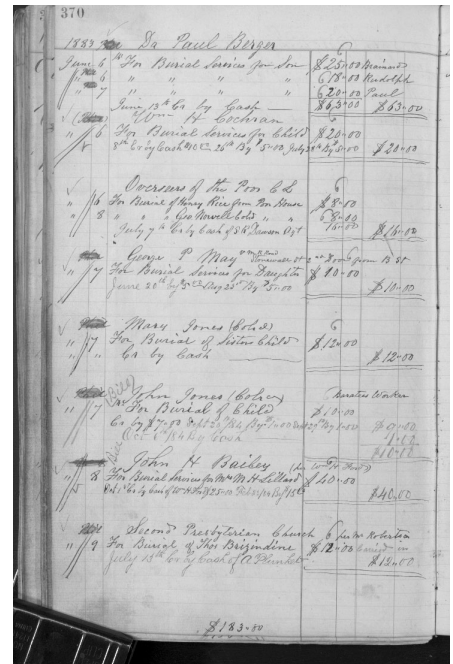 370
1883 Da Paul Berger 6
June 6 th For Burial Services for Son $25-00 Mainard
" 6 " " " " 6 18-00 Rudolph
" 7 " " " " 6 20-00 Paul
June 13th Cr by Cash — $63-00 $63-00
Wm H Cochran 6
" 6 For Burial Services for Child $20-00
8th Cr by Cash $10 25th By $5-00 July 28th By 5-00 $20-00
Overseers of the Poor C L 6
" 6 For Burial of Henry Rice from Poor House $8-00
" 8 " " " Geo Norvell Cold " " 6 8-00
July 7th Cr by Cash of S R Dawson Agt 16-00 $16-00
George P May 2nd door from 13 St
" 7 For Burial Services for Daughter $10-00
June 20th By $5 Aug 22nd By $5-00 $10-00
Mary Jones (Cold) 6
" 7 For Burial of Sisters Child $12-00
" " Cr by Cash $12-00
(Bill) John Jones (Colrd) Charates Worker
" 7 For Burial of Child $10-00
Cr by $7-00 Sept 20/84 By $1-00 29 By 1-00 $9-00
Oct 1st 84 By Cash 1-00
$10-00
John H Bailey
" 8 For Burial Services for Mr M H Lillard $40-00
$40-00
Second Presbyterian Church 6 per Mr Robertson
" 9 For Burial of Thos Brizindine $12-00 buried in
July 13th Cr by Cash of A Plunket $12-00
$183-00